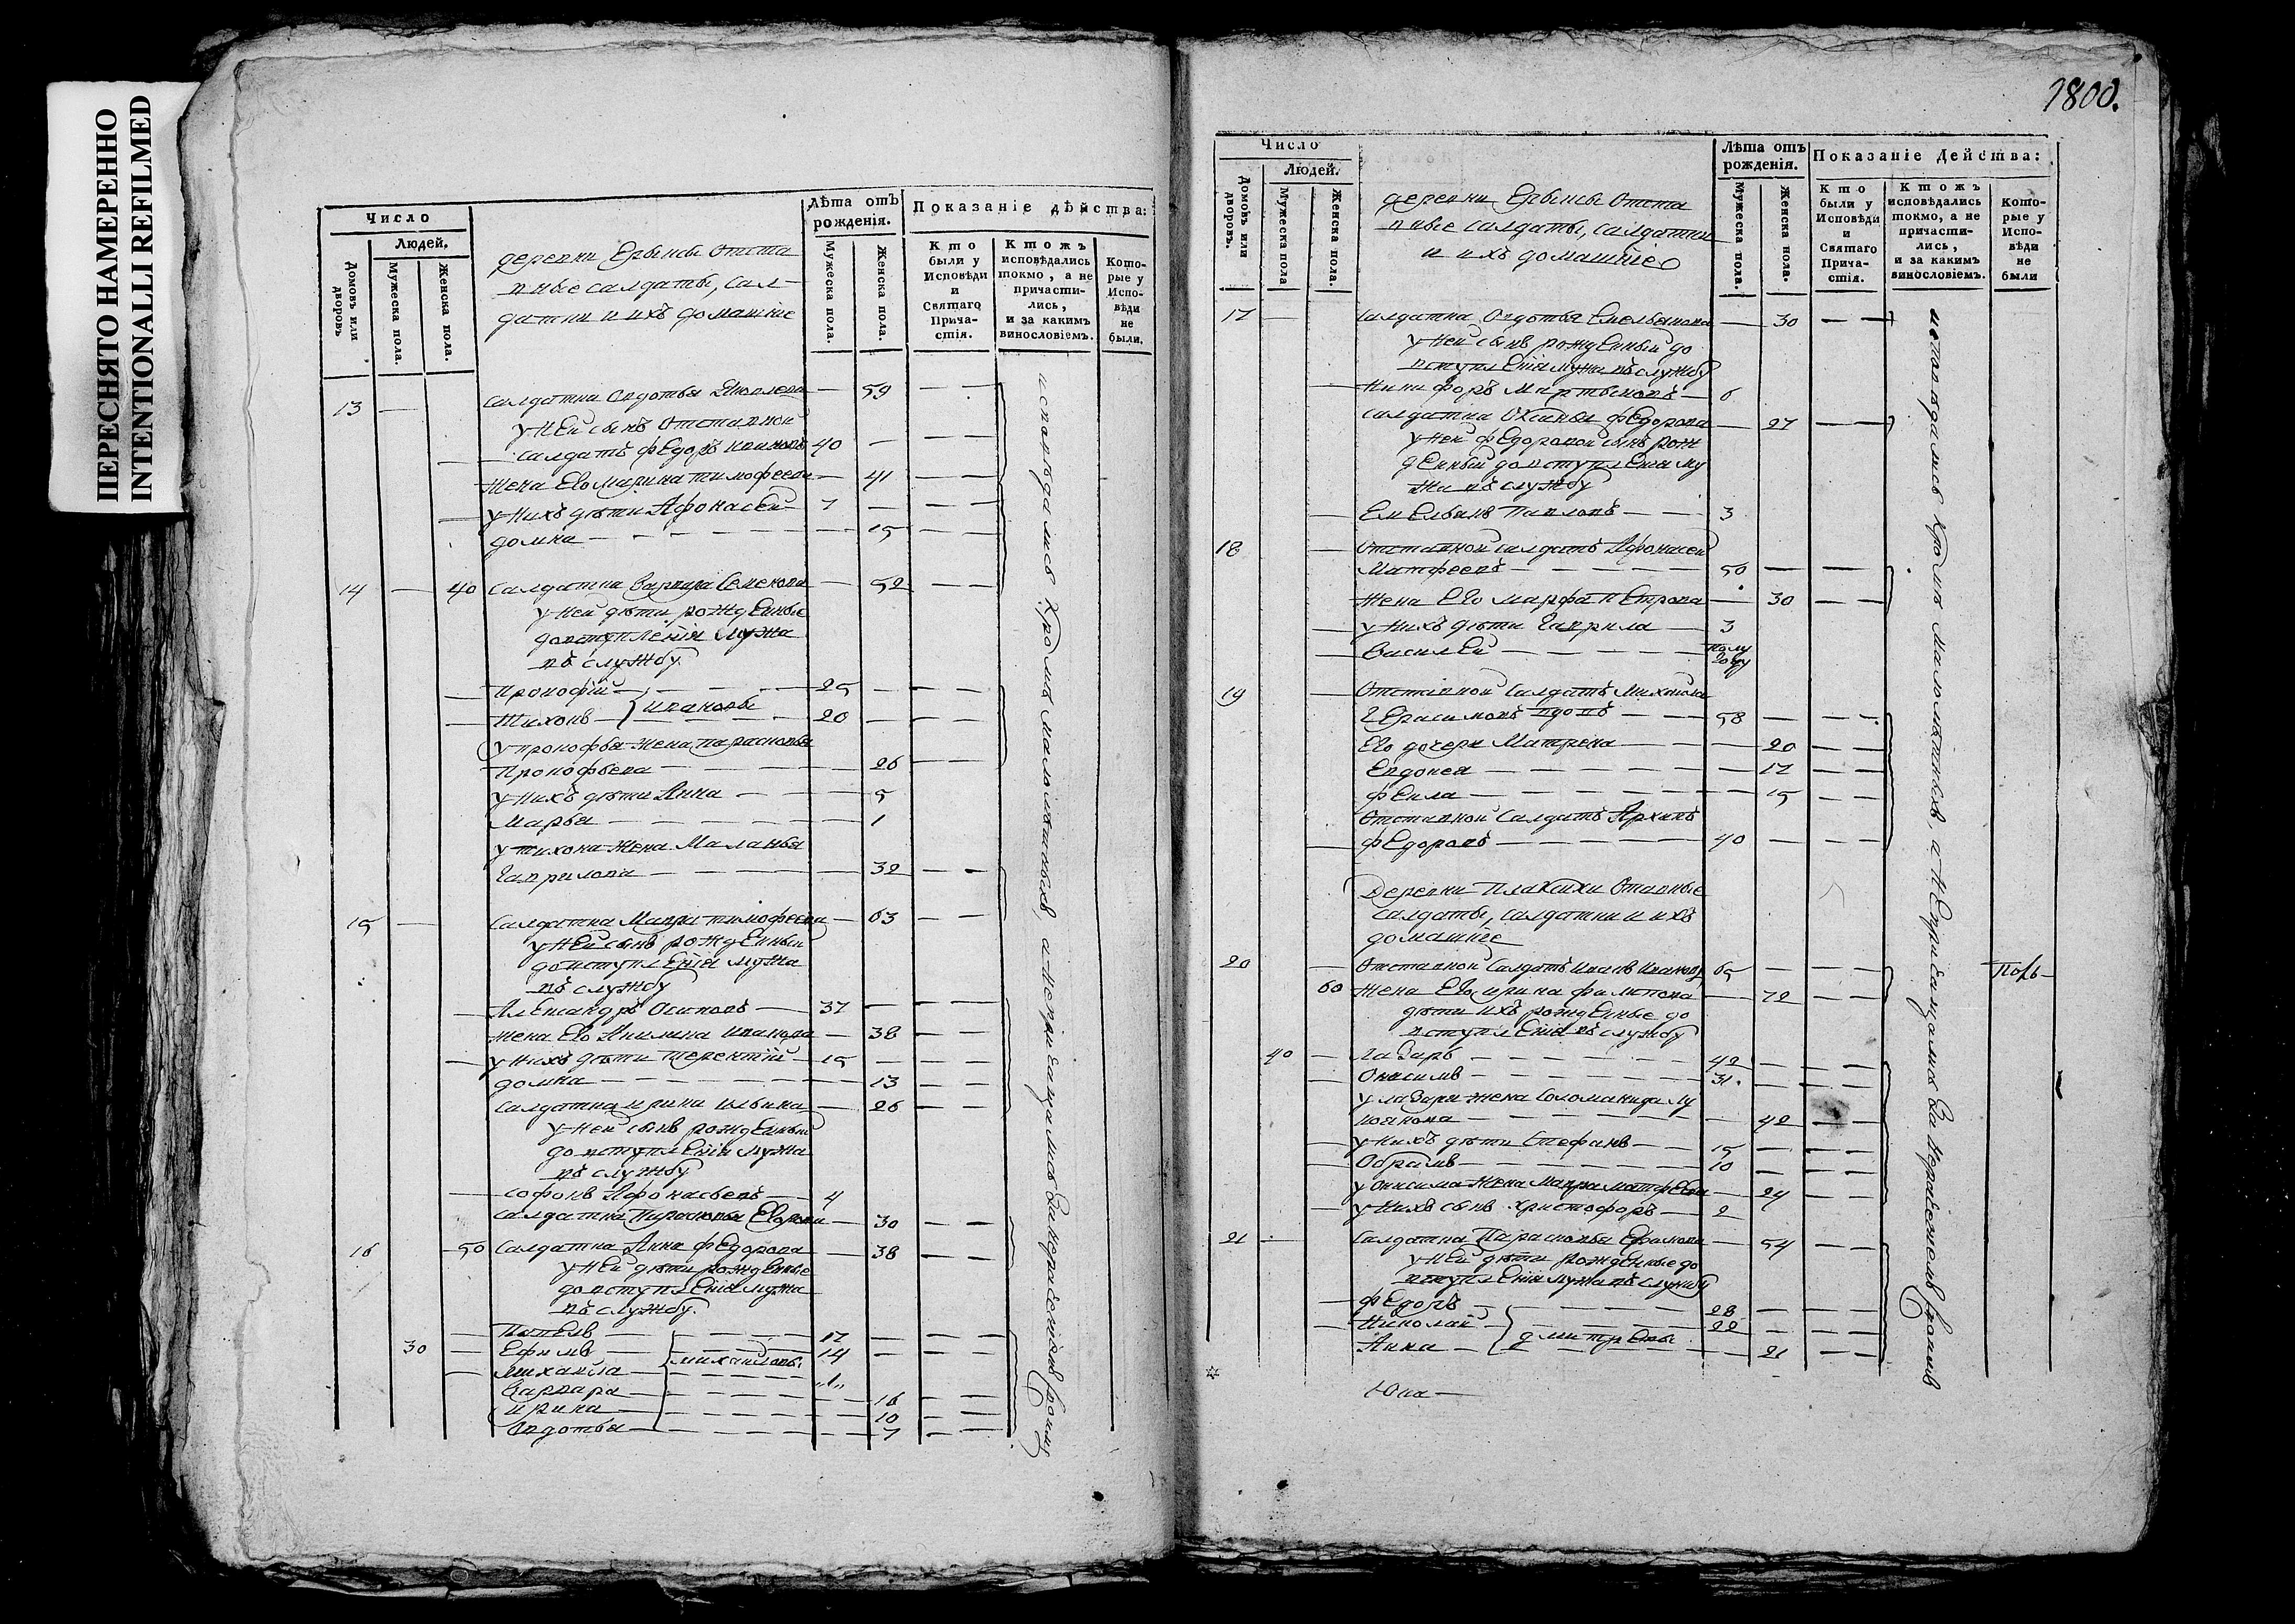 ПЕРЕСНЯТО НАМЕРЕННО
INTENTIONALLI REFILMED
Число
Людей.
Домовъ или дворовъ
Мужеска пола.
Женска пола.
деревни Отста
вные салдаты, сал-
датки и ихъ домашніе
Лѣта отъ рожденія.
Мужеска пола.
Женска пола.
Показаніе дѣйства:
Кто были у Исповѣди и Святаго Прича-стія.
Ктожъ исповѣдались токмо, а не причасти-лись, и за какимъ винословіемъ.
Кото-рые у Испо-вѣди не были.
13 — салдатка Авдотья — 59 — —
у неи сынъ Отставной
салдатъ Федоръ Ивановъ 40 — — —
жена Его Марина тимофеева — 41 — —
у нихъ дѣти Афонасеи — 7 — — —
домна — — — — 15 — —
14 — 40 салдатка Варвара Семенова — 52 — —
у неи дѣти рожденные
до вступленія мужа
въ службу.
Прокофіи — 25 — — —
Тихонъ — } Ивановы — 20 — — —
у прокофья жена парасковья
Прокофьева — — — 26 — —
у нихъ дѣти Анна — — 5
Марья — — — — 1
у тихона жена Маланья
Гаврилова — — — 32 — —
15 — салдатка Мавра тимофеева — 63 — —
у неи сынъ рожденныи
до вступленія мужа
въ службу
Александръ Осиповъ — 37 — — —
жена Его Акилина Иванова — 38 — —
у нихъ дѣти терентіи — 15 — — —
домна — — — — 13 — —
салдатка ирина ильина — 26 — —
у неи сынъ рожденныи
до вступленія мужа
въ службу
софонъ Афонасьевъ — 4
салдатка Парасковья Егорова — 30 — —
16 — 50 салдатка Анна Федорова — 38 — —
у неи дѣти рожденные
до вступленія мужа
въ службу.
17 — — —
30 — Ефимъ — 14 — — —
михаила — } михаиловы
Варвара — — — 16 — —
ирина — — — 10 — —
Авдотья — — — 7 — —
исповѣдались кромѣ малолѣтныхъ, а непричащались за нерадѣніемъ своимъ
1800.
Число
Людей.
Домовъ или дворовъ.
Мужеска пола
Женска пола.
деревни Отста
вные салдаты, салдатки
и ихъ домашніе
Лѣта отъ рожденія.
Мужеска пола.
Женска пола.
Показаніе Действа:
Кто были у Исповѣди и Святаго Прича-стія.
Ктожъ исповѣдались токмо, а не причасти-лись, и за какимъ винословіемъ.
Кото-рые у Испо-вѣди не были
17 — салдатка Авдотья Емельянова — 30 — —
у неи сынъ рожденныи до
вступленія мужа въ службу
Никифоръ Мартыновъ — 6
салдатка Оксинья федорова — 27 — —
у неи федоровои сынъ рож
денныи до вступленія му
жа въ службу
Емельянъ Павловъ — — 3
18 — Отставнои салдатъ Афонасеи
Матфеевъ — — — 50 — — —
жена Его марфа петрова — 30 — —
у нихъ дѣти Гаврила — 3
Василеи — — — полу году
19 — Отставнои салдатъ михаила
Герасимовъ вдовъ — — 58 — — —
Его дочери Матрена — — 20 — —
Евдокея — — — — 17 — —
фекла — — — — 15 — —
Отставнои салдатъ Архипъ
федоровъ — — — 40 — — —
Деревни Отавные
салдаты, салдатки и ихъ
домашніе
20 — Отставнои салдатъ иванъ ивановъ 65 — — —
60 жена Его ирина филипова — 72 — —
дѣти ихъ рожденные до
вступленія въ службу
40 — лазарь — — — 42 — — —
Онисимъ — — — 31. — — —
у лазаря жена соломанида лу
— — 42 — —
у нихъ дѣти Стефанъ — 15 — — —
Обрамъ — — — 10 — — —
у онисима жена мавра матфеева — 24 — —
у нихъ сынъ христофоръ — 2
21 — салдатка Парасковья — 54 — —
у неи дѣти рожденные до
вступленія мужа въ службу
федоръ — — 28 — — —
Николаи — } дмитревы 22 — — —
Анна — — — 21 — —
исповѣдались кромѣ малолѣтныхъ, а непричащались за нерадѣніемъ своимъ